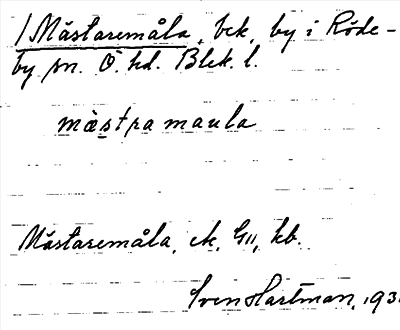 /Mästaremåla, bek, by i Röde-
by sn. Ö. hd. Blek. l.
mästra maula
Mästaremåla, ek, G11, kb.
Sven Hartman, 193